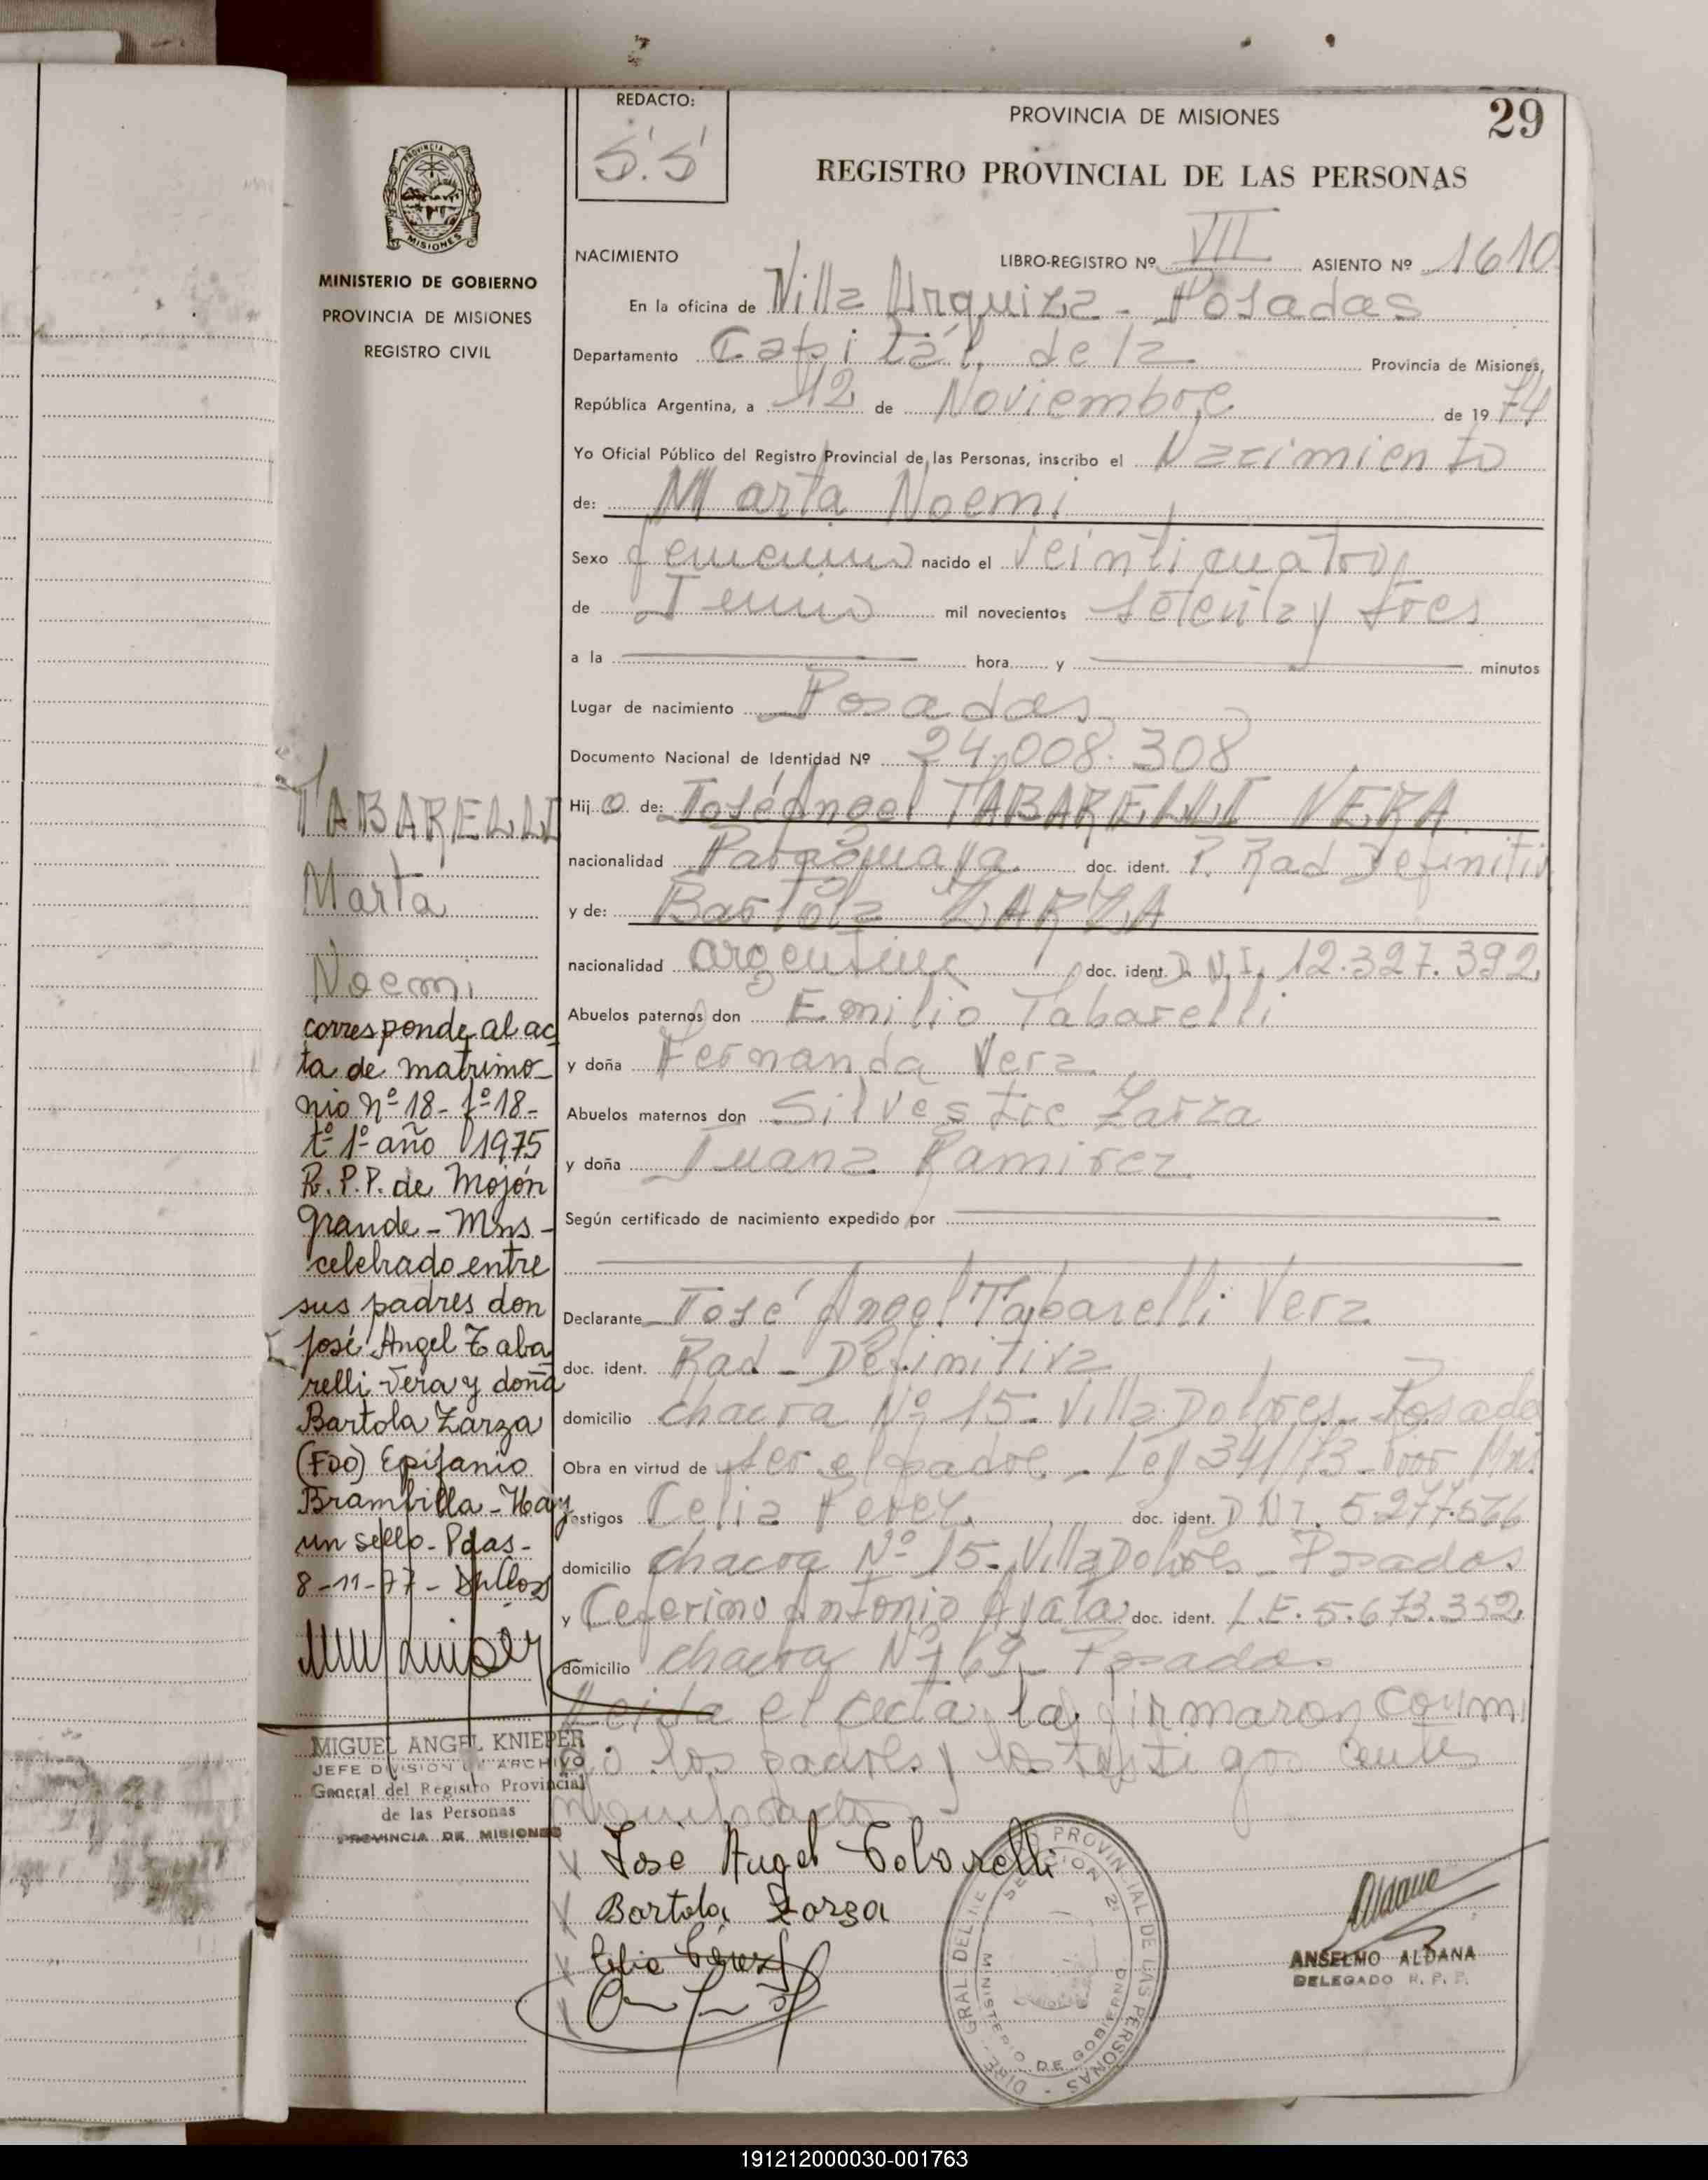 29
REDACTO:
S.S
PROVINCIA DE MISIONES
REGISTRO PROVINCIAL DE LAS PERSONAS
PROVINCIA DE
MISIONES
MINISTERIO DE GOBIERNO
PROVINCIA DE MISIONES
REGISTRO CIVIL
NACIMIENTO LIBRO-REGISTRO Nº VII ASIENTO Nº 1610
En la oficina de Villa Urquiza - Posadas
Departamento Capital de la Provincia de Misiones,
República Argentina, a 12 de Noviembre de 1974
Yo Oficial Público del Registro Provincial de las Personas, inscribo el Nacimiento
de: Marta Noemi
Sexo femenino nacido el veinticuatro
de Junio mil novecientos setenta y tres
a la hora y minutos
Lugar de nacimiento Posadas
Documento Nacional de Identidad Nº 24.008.308
Hij a de: José Angel TABARELLI VERA
nacionalidad Paraguaya doc. ident. P. Rad Definitiv
y de: Bartola ZARZA
nacionalidad argentina doc. ident. D.N.I. 12.327.392
Abuelos paternos don Emilio Tabarelli
y doña Fernanda Vera
Abuelos maternos don Silvestre Zarza
y doña Juana Ramirez
Según certificado de nacimiento expedido por
Declarante José Angel Tabarelli Vera
doc. ident. Rad - Definitiva
domicilio chacra Nº 15- Villa Dolores - Posada
Obra en virtud de ser el padre - Ley 341/73
testigos Celia Perez doc. ident. D.N.I. 5.277.566
domicilio chacra Nº 15- Villa Dolores - Posadas
y Ceferino Antonio Ayala doc. ident. L.E. 5.673.352
domicilio chacra Nº 69 - Posadas
Leida el acta, la firmaron conmi
go los padres y los testigos
José Angel Tabarelli
Bartola Zarza
Celia Pérez
TABARELLI
Marta
Noemi
corresponde al ac
ta de matrimo-
nio nº 18- fº 18-
tº 1º año 1975
R.P.P. de Mojón
grande - Mns-
celebrado entre
sus padres don
José Angel Taba
relli Vera y doña
Bartola Zarza
(FDO) Epifanio
Brambilla - Hay
un sello - Pdas-
8-11-77-
MIGUEL ANGEL KNIEPER
JEFE DIVISION DE ARCHIVO
General del Registro Provincial
de las Personas
PROVINCIA DE MISIONES
PROVINCIAL DE LAS PERSONAS - DIREC. GRAL. DEL
SECCION 2ª
MINISTERIO DE GOBIERNO
Aldana
ANSELMO ALDANA
DELEGADO R. P. P.
191212000030-001763